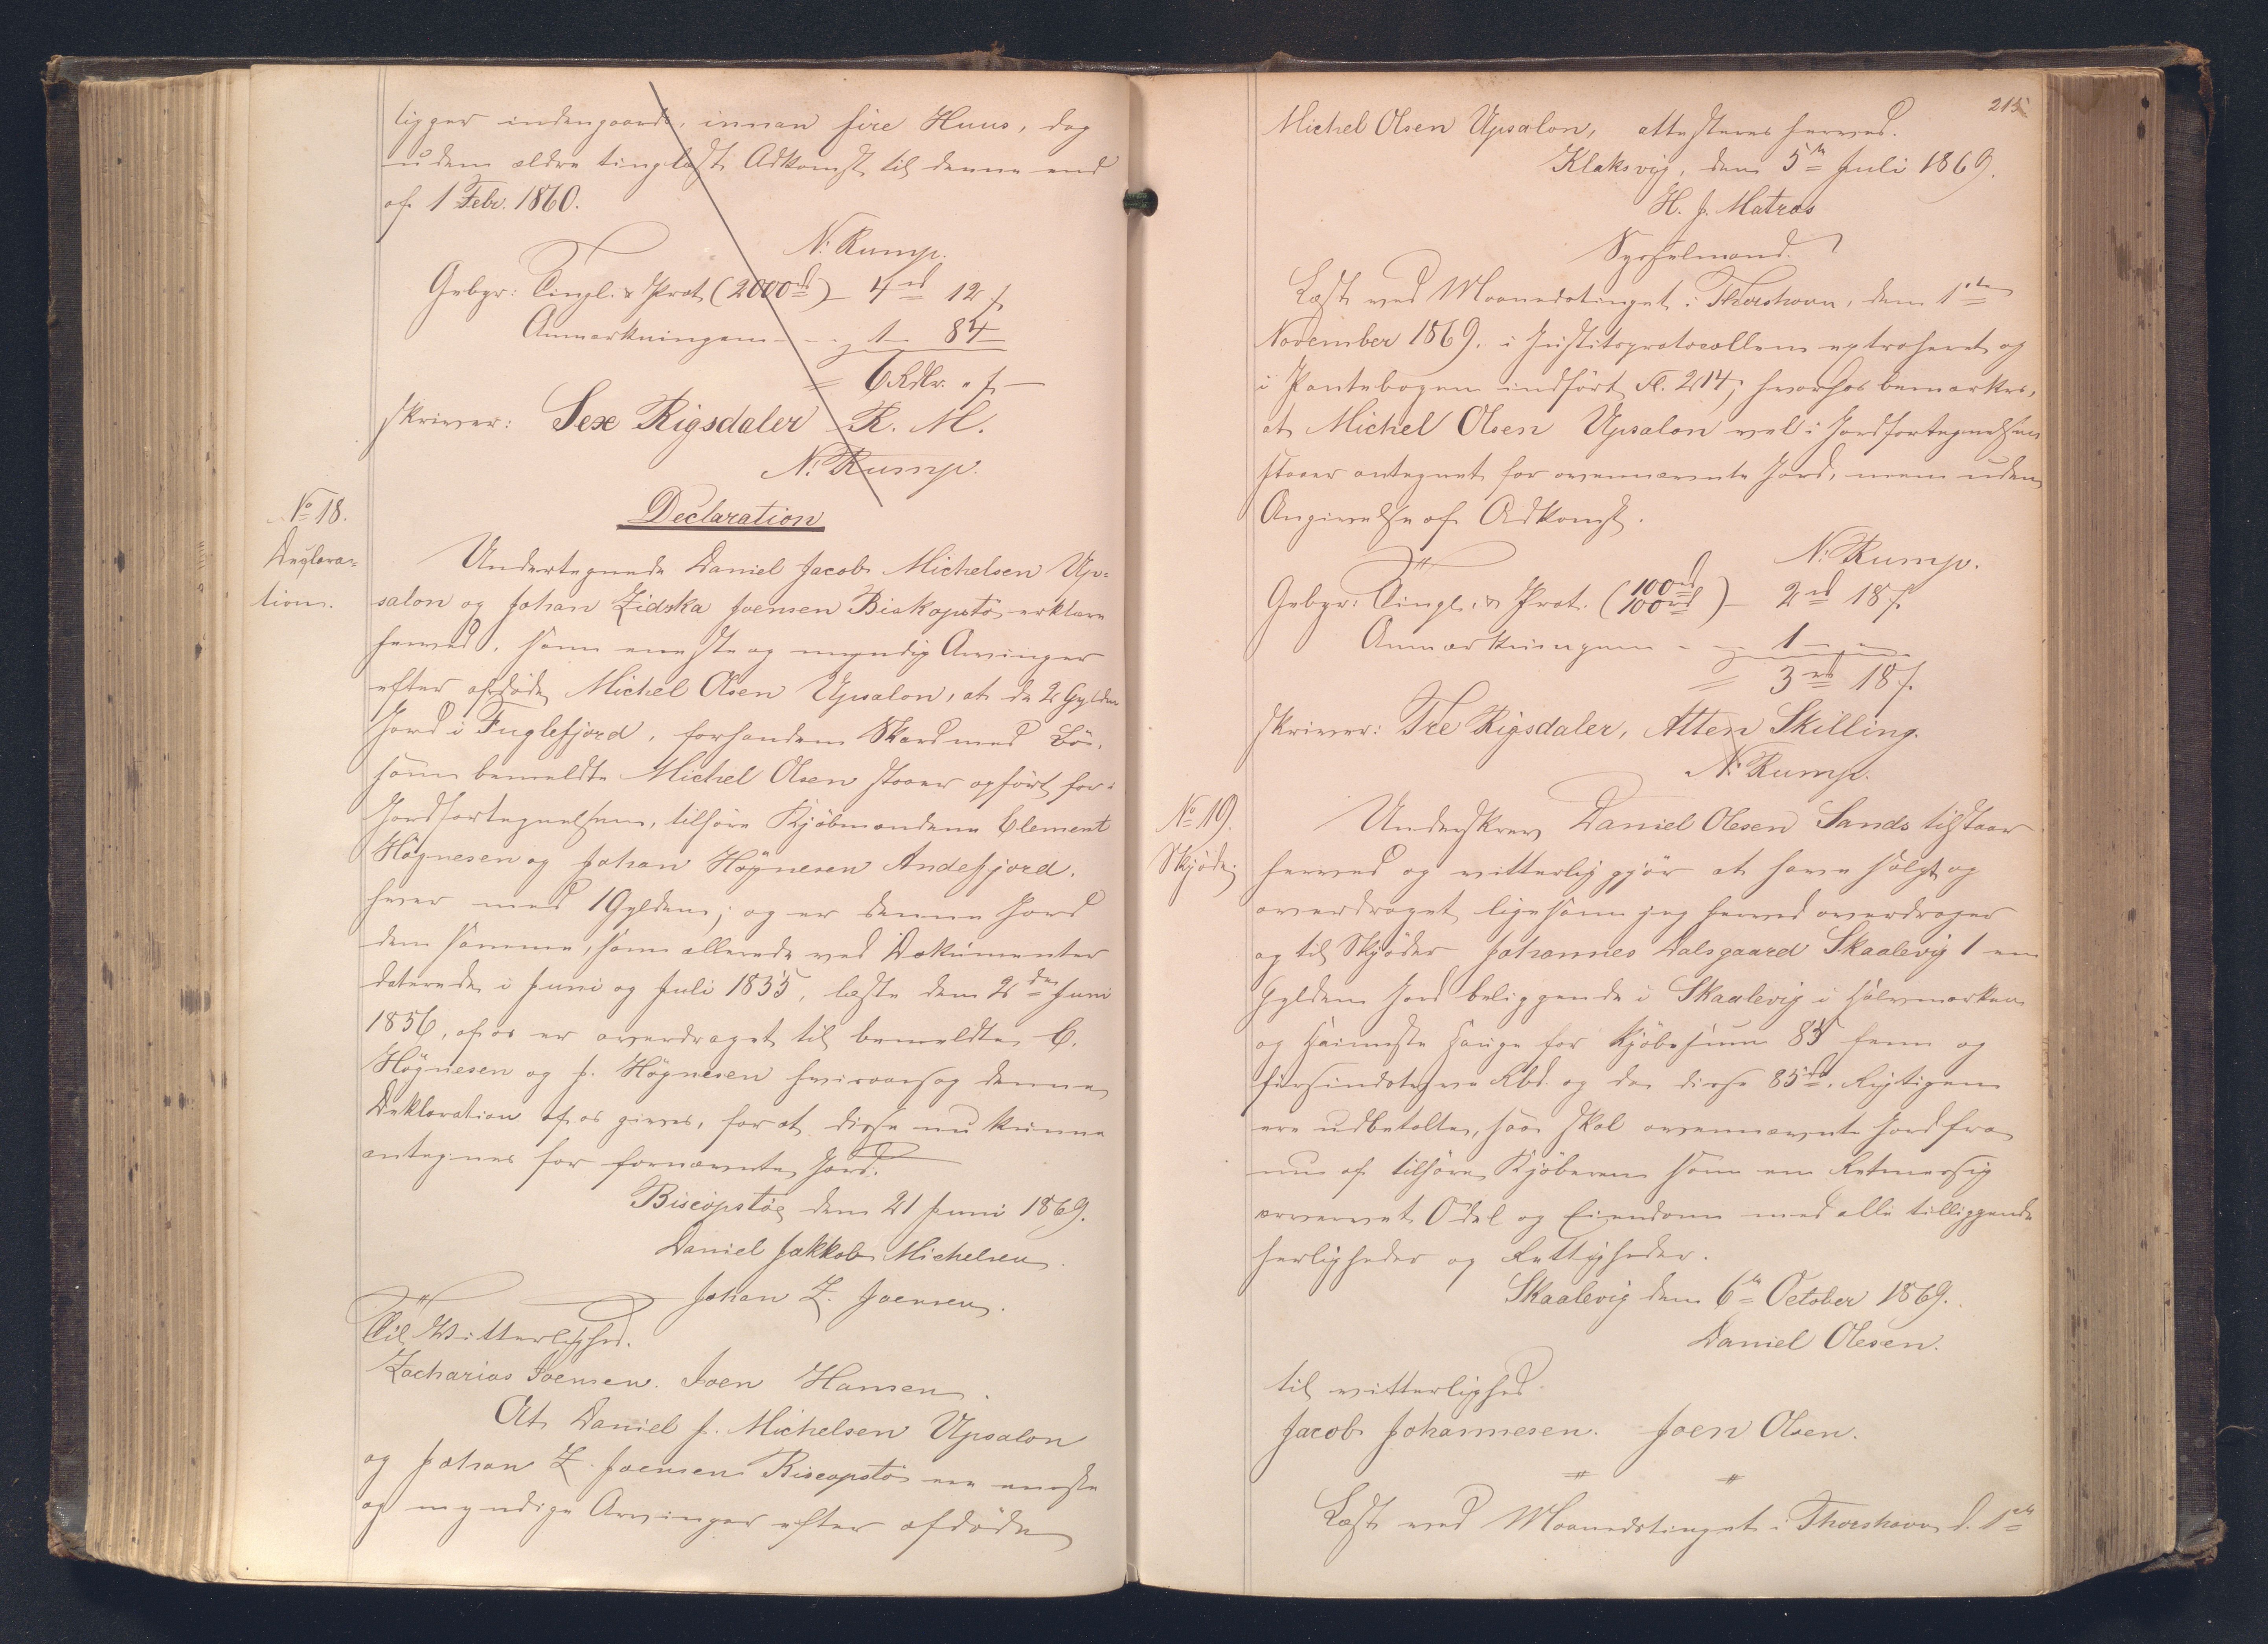 ligger indengaards, innan fire Huus, dog
uden ældre tinglæst Adkomst til denne end
af 1 Febr. 1860.
N. Rump.
Gebyr: Tingl. & Prot. (2000 rd) - 4 rd 12 s
Anmærkningen - - - 1 - 84 -
= 6 Rdlr. " s -
skriver: Sex Rigsdaler R. M.
N. Rump.
No 18.
Deklara-
tion.
Declaration
Undertegnede Daniel Jacob Michelsen Up-
salon og Johan Zidska Joensen Biskopstö erklære
herved, som eneste og myndig Arvinger
efter afdöde Michel Olsen Upsalon, at de 2 Gylden
Jord i Fuglefjord, forhandem Skard med Bö,
som bemeldte Michel Olsen staaer opfört for i
Jordfortegnelsen, tilhöre Kjöbmændene Clement
Högnesen og Johan Högnesen Andefjord,
hver med 1 Gylden; og er denne Jord
den samme, som allerede ved Dokumenter
daterede i Juni og Juli 1855, læste den 2den Juni
1856, af os er overdraget til bemeldte C.
Högnesen og J. Högnesen hvisaarsag denne
Deklaration af os gives, for at disse nu kunne
antegnes for fornævnte Jord.
Biscopstö, den 21 Juni 1869.
Daniel Jakkob Michelsen.
Johan Z. Joensen.
Til Vitterlighed.
Zacharias Joensen. Joen Hansen.
At Daniel J. Michelsen Upsalon
og Johan Z. Joensen Biscopstö ere eneste
og myndige Arvinger efter afdöde
215
Michel Olsen Upsalon, attesteres herved.
Klaksvig, den 5te Juli 1869.
H. J. Matras
Sysselmand.
Læst ved Maanedstinget i Thorshavn, den 1ste
November 1869, i Justitsprotocollen extraheret og
i Pantebogen indfört Fl. 214, hvorhos bemærkes,
at Michel Olsen Upsalon vel i Jordfortegnelsen
staaer antegnet for ovennævnte Jord, men uden
Angivelse af Adkomst.
N. Rump.
Gebyr: Tingl. & Prot. (100 rd 100 rd) - 2 rd 18 s.
Anmærkningen - - 1 - " -
= 3 rd 18 s.
skriver: Tre Rigsdaler, Atten Skilling.
N. Rump.
No 19.
Skjöde.
Underskrev Daniel Olesen Sands tilstaar
herved og vitterlig gjör at have solgt og
overdraget ligesom jeg herved overdrager
og til Skjöder Johannes Dalsgaard Skaalevig 1 en
Gylden Jord beliggende i Skaalevig i Hálvmarken
og Haimste Hauge for Kjöbesum 85 fem og
firsindstyve Rbd. og da disse 85 rd. Rigtigen
ere udbetalte, saa skal ovennævnte Jord fra
nu af tilhöre Kjöberen som en Retmæssig
erhvervet Odel og Eiendom med alle tilliggende
herligheder og Rettigheder.
Skaalevig den 6te October 1869.
Daniel Olesen.
til vitterlighed
Jacob Johannesen. Joen Olsen.
Læst ved Maanedstinget i Thorshavn d. 1ste